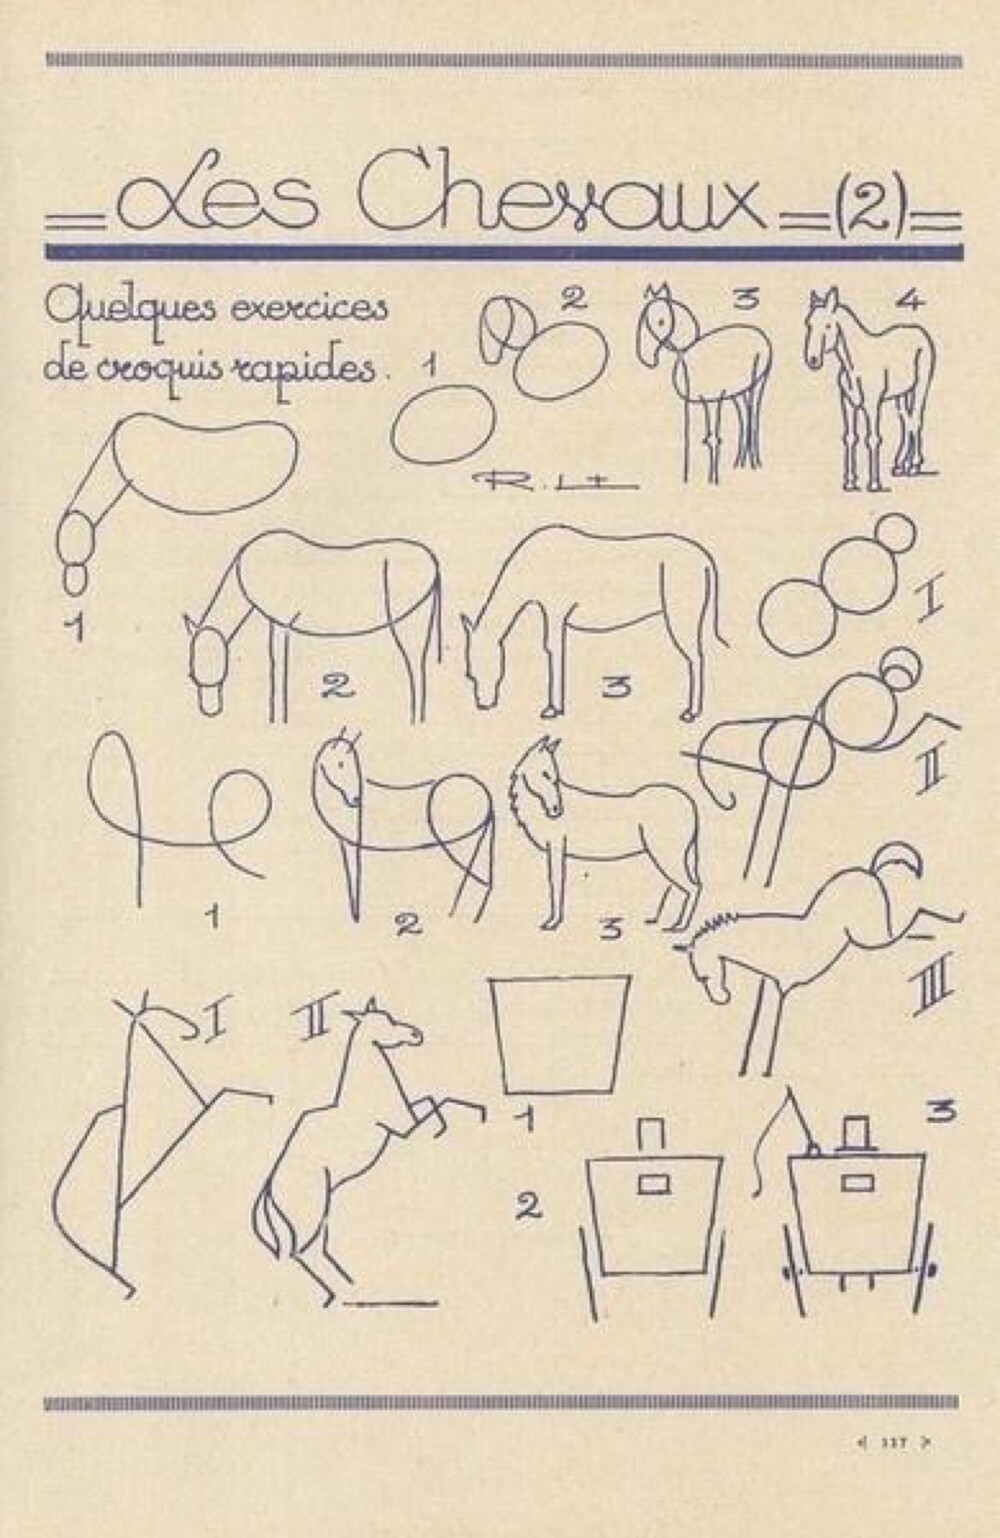 Les Chevaux (2)
Quelques exercices
de croquis rapides.
1
2
3
4
R.LT
1
2
3
I
1
2
3
II
III
I
II
1
2
3
117